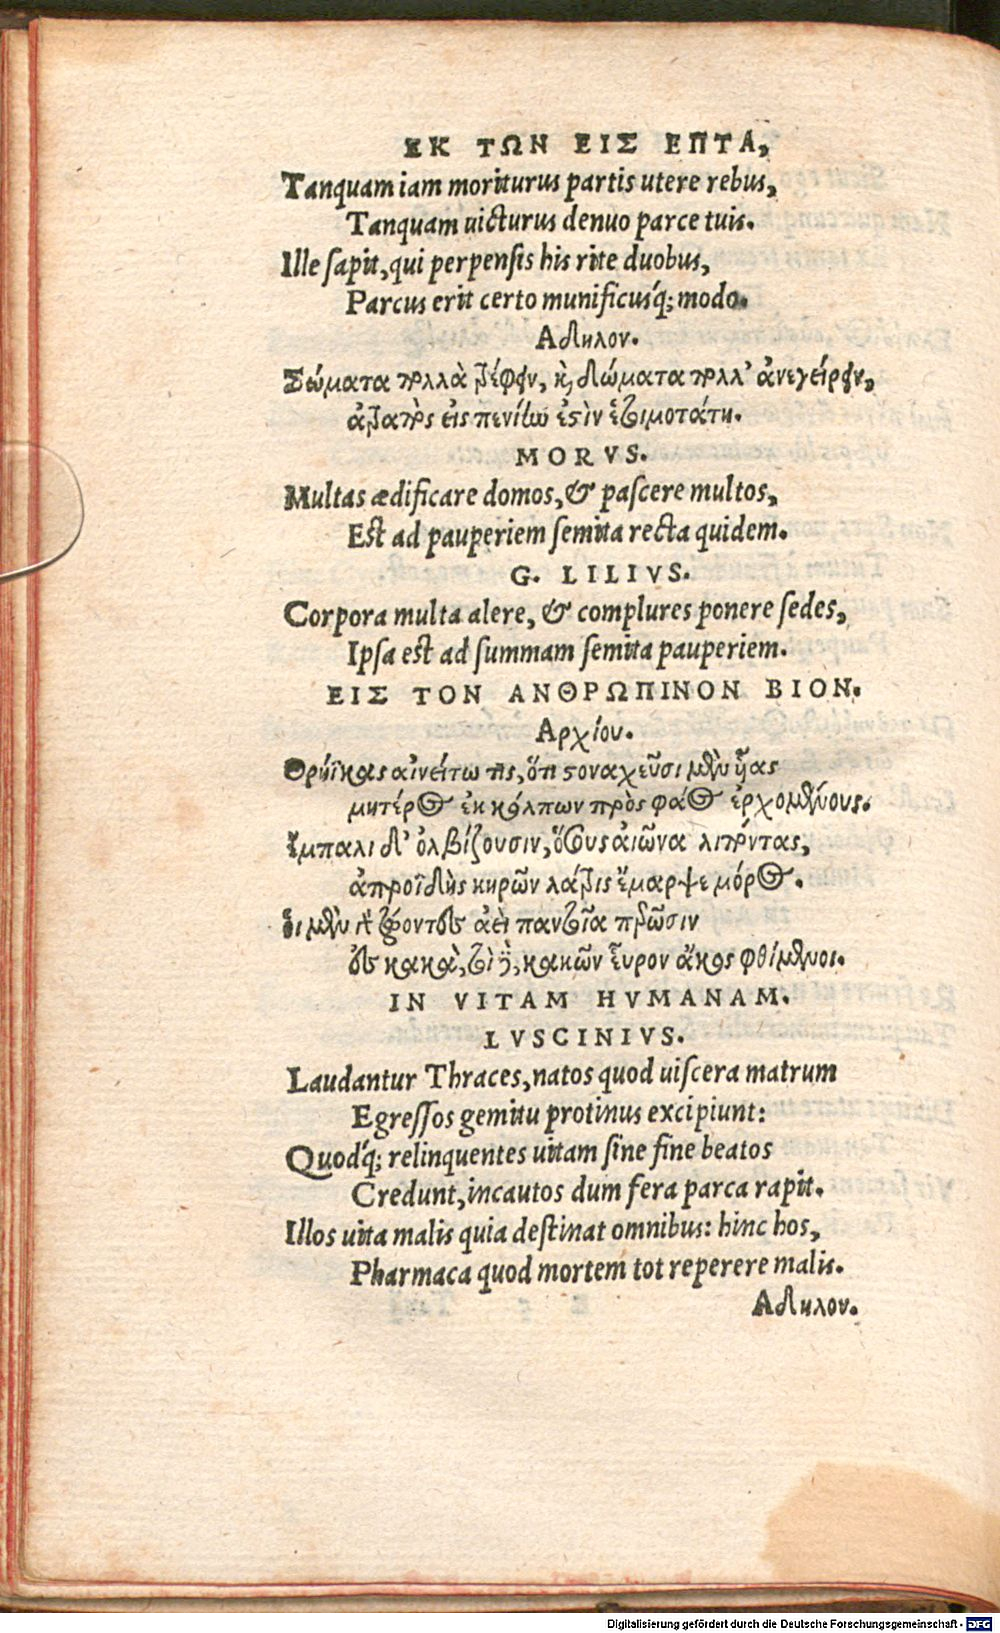 ΕΚ ΤΩΝ ΕΙΣ ΕΠΤΑ,
Tanquam iam moriturus partis utere rebus,
Tanquam uicturus denuo parce tuis.
Ille ſapit, qui perpenſis his rite duobus,
Parcus erit certo munificusq́; modo.
Αδηλον.
Σώματα πολλὰ τρέφειν, κὶ δώματα πολλ' ἀνεγείρειν,
ἀτραπὸς εἰς πενίην ἐστὶν ἑτοιμοτάτη.
MORVS.
Multas ædificare domos, & paſcere multos,
Eſt ad pauperiem ſemita recta quidem.
G. LILIVS.
Corpora multa alere, & complures ponere ſedes,
Ipſa eſt ad ſummam ſemita pauperiem.
ΕΙΣ ΤΟΝ ΑΝΘΡΩΠΙΝΟΝ ΒΙΟΝ.
Αρχίου.
Θρήϊκας αἰνείτω τις, ὅτι στοναχεῦσι μὲν ὑῆας
μητέρος ἐκ κόλπων πρὸς φάος ἐρχομένους.
ἔμπαλι δ' ὀλβίζουσιν, ὅσους αἰῶνα λιπόντας,
ἀπροϊδὴς κηρῶν λάτρις ἔμαρψε μόρος.
ὁι μὲν γὰρ ζώοντες ἀεὶ παντοῖα περῶσιν
ἐς κακὰ, τοὶ δὲ, κακῶν ἕυρον ἄκος φθίμενοι.
IN VITAM HVMANAM.
LVSCINIVS.
Laudantur Thraces, natos quod uiſcera matrum
Egreſſos gemitu protinus excipiunt:
Quodq́; relinquentes uitam ſine fine beatos
Credunt, incautos dum fera parca rapit.
Illos uita malis quia deſtinat omnibus: hinc hos,
Pharmaca quod mortem tot reperere malis.
Αδηλον.
Digitalisierung gefördert durch die Deutsche Forschungsgemeinschaft - DFG